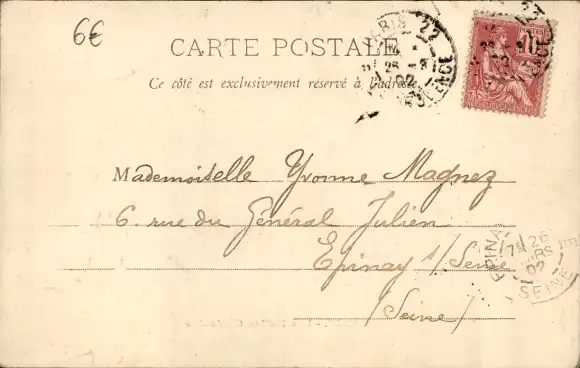 6€
CARTE POSTALE
Ce côté est exclusivement réservé à l'adresse
PARIS 22
25 - 3
02
Mademoiselle Yvonne Magnez
6. rue du Général Julien
Epinay s/ Seine
(Seine)
EPINAY
26
MARS
02
SEINE